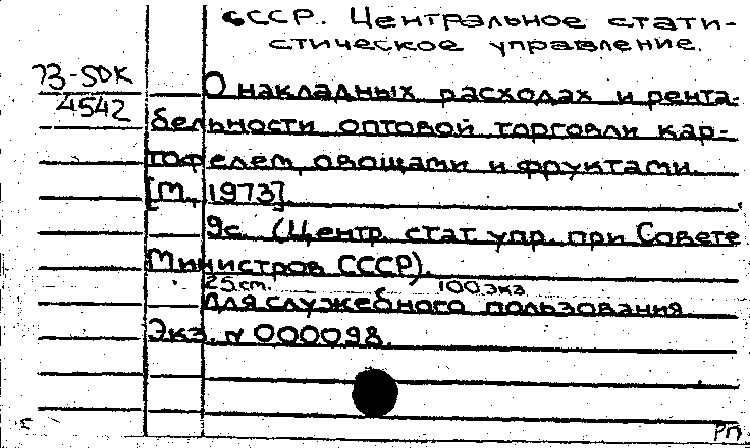 СССР. Центральное стати-
стическое управление.
73-5DK
4542
О накладных расходах и рента-
бельности оптовой торговли кар-
тофелем, овощами и фруктами.
[М., 1973]
9с. (Центр. стат. упр. при Совете
Министров СССР).
25 см. 100 экз.
Для служебного пользования
Экз. № 000098.
РП